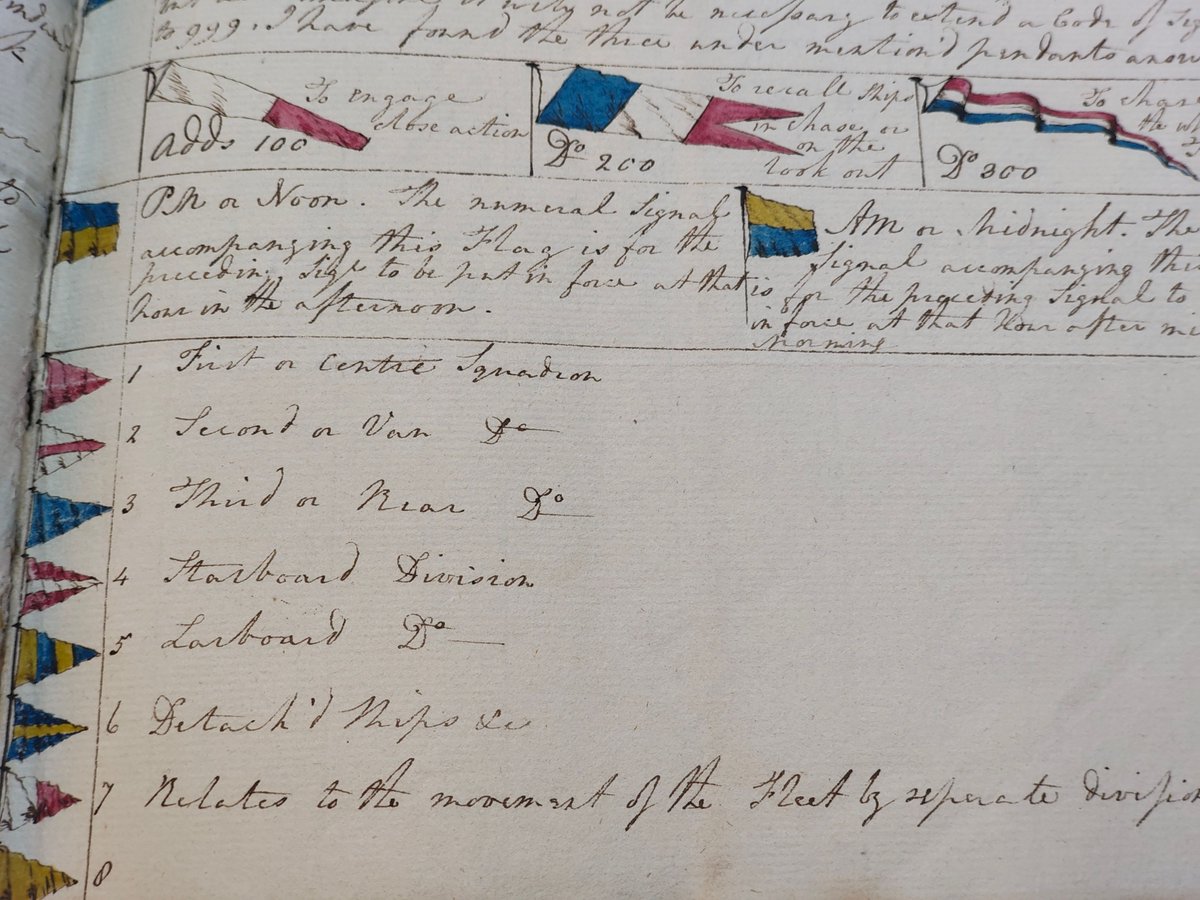 not be necessary to extend a Code of
to 999. I have found the three under mention'd pendants
To engage
close action
adds 100
To recall Ships
in chase or
on the
look out
Do 200
To
the
Do 300
PM or Noon. The numeral Signal
accompanying this Flag is for the
preceding Sigl to be put in force at that
hour in the afternoon.
AM or Midnight. The
Signal accompanying this
is for the preceding Signal to
in force at that Hour after
Morning
1 First or Centre Squadron
2 Second or Van Do
3 Third or Rear Do
4 Starboard Division
5 Larboard Do
6 Detach'd Ships &c
7 Relates to the movement of the Fleet by seperate
8